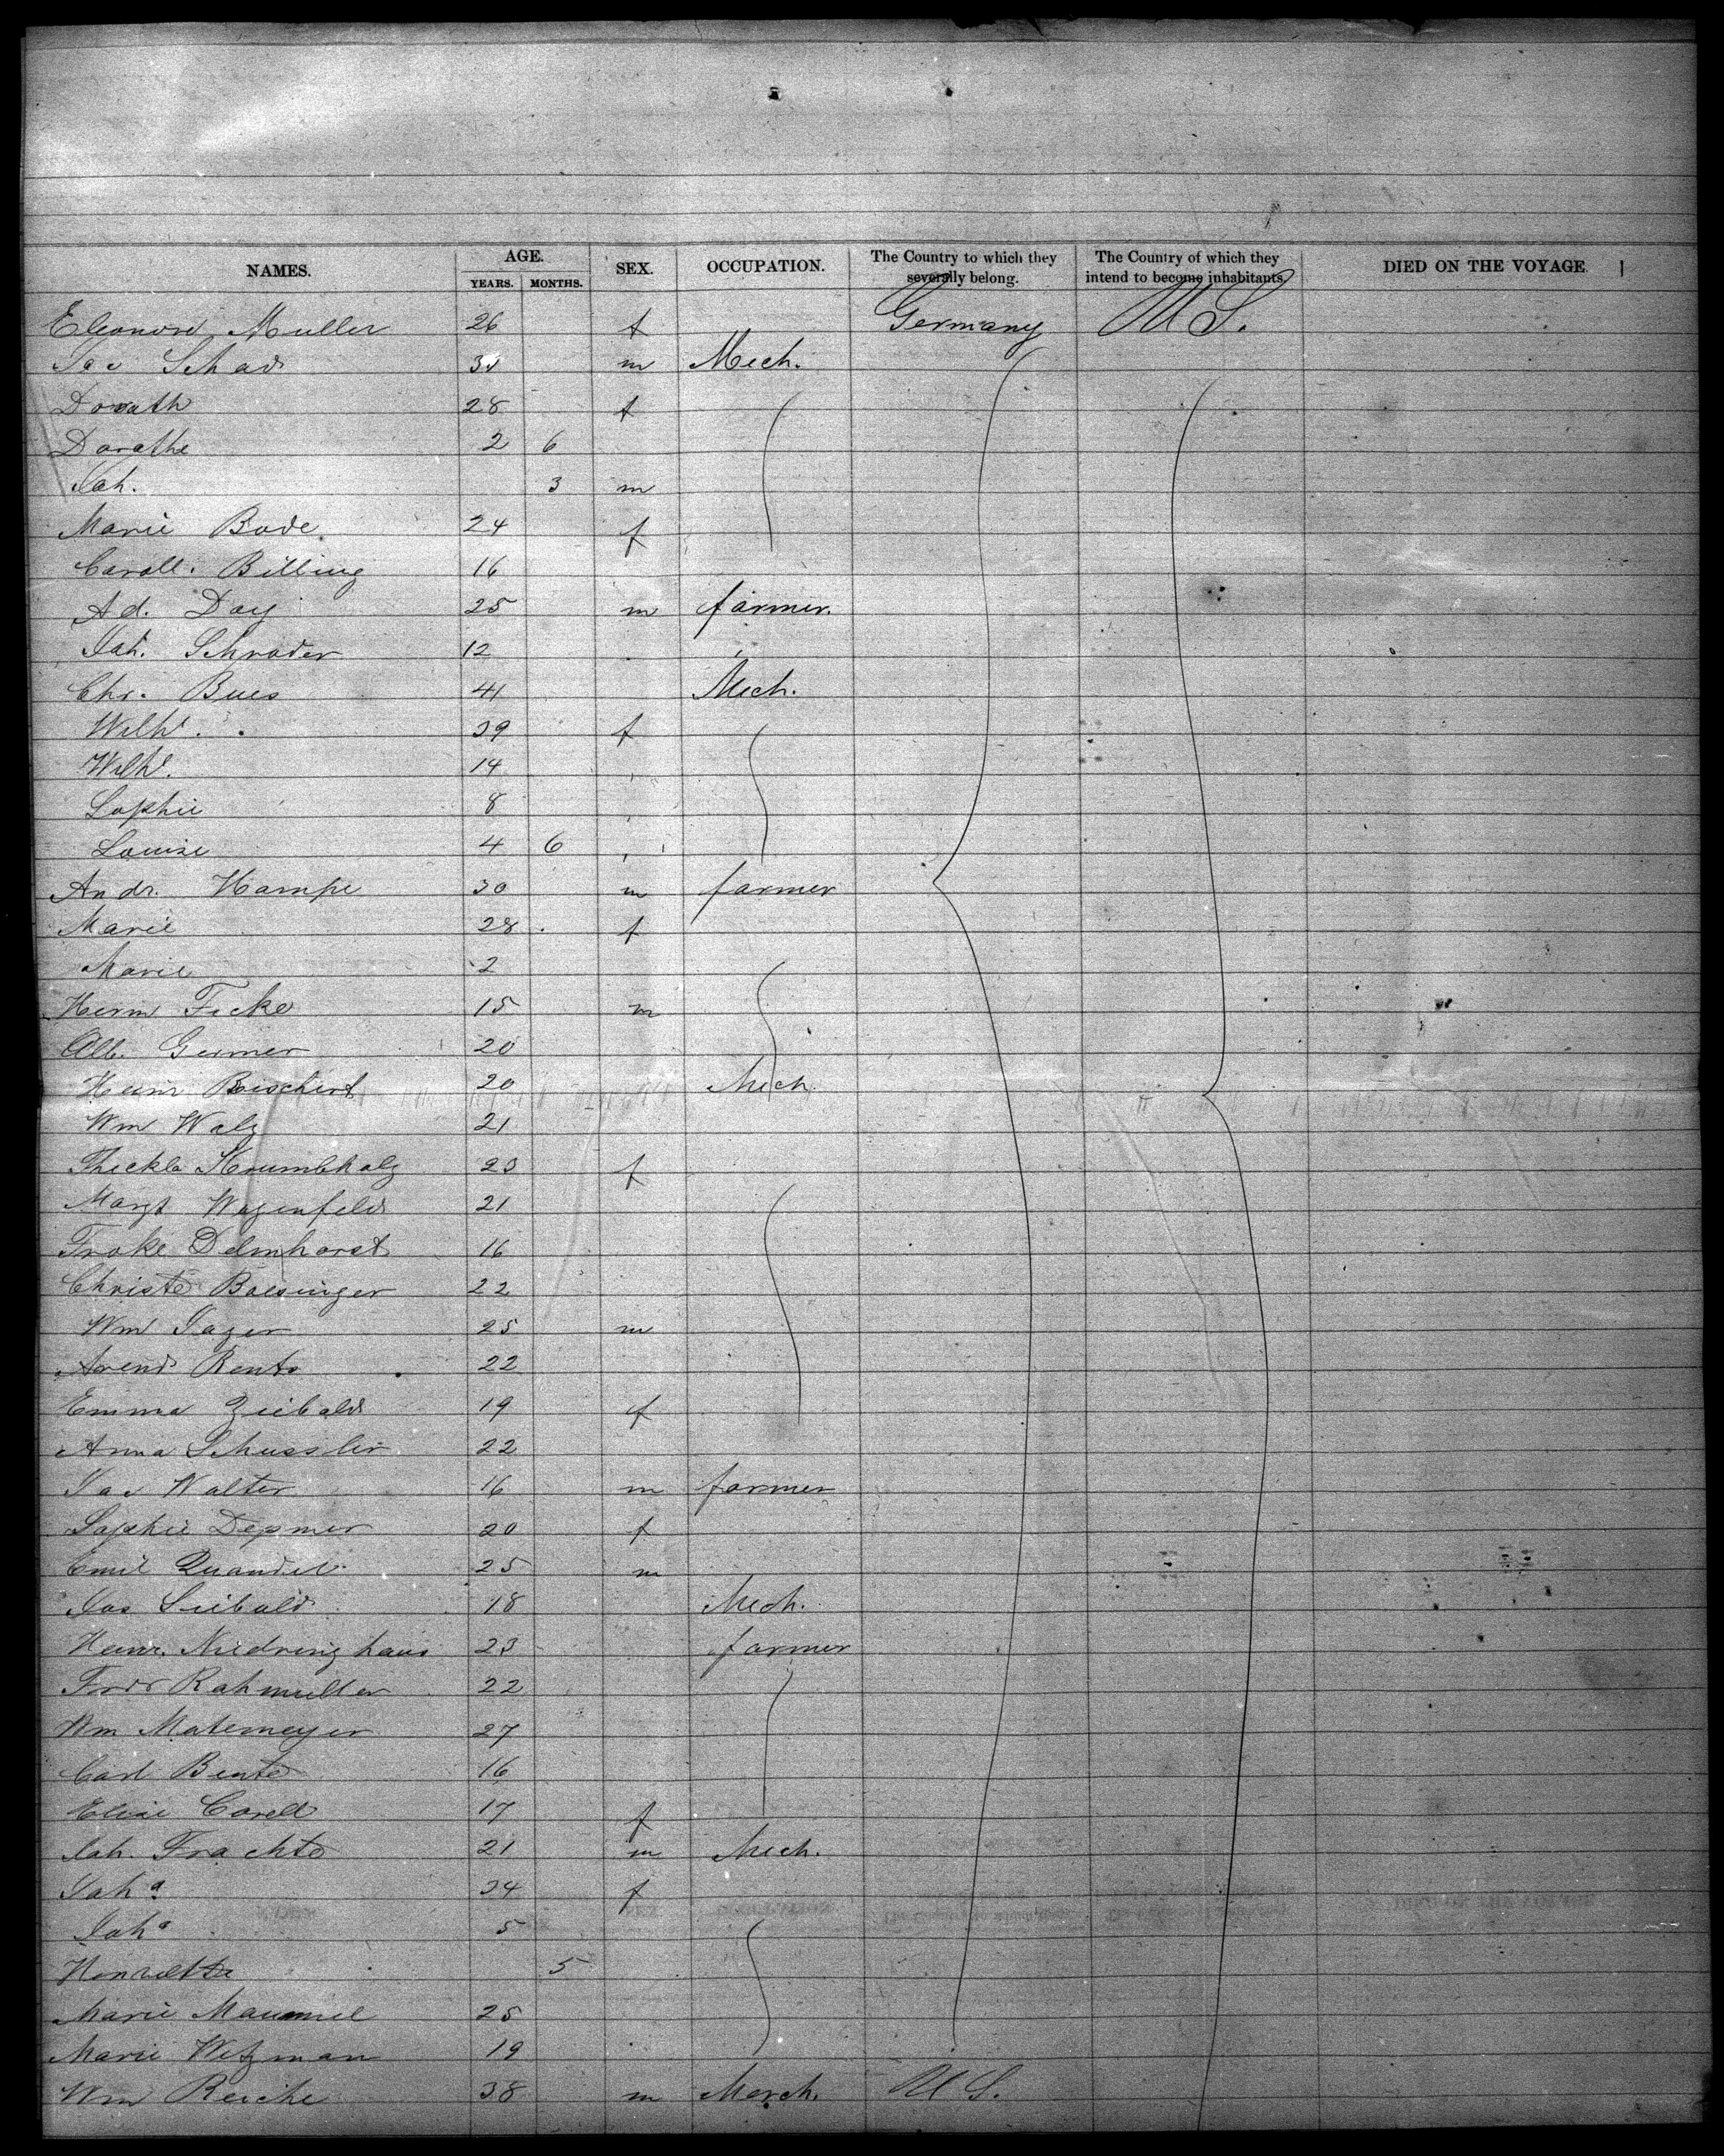 NAMES. AGE. SEX. OCCUPATION. The Country to which they severally belong. The Country of which they intend to become inhabitants. DIED ON THE VOYAGE
YEARS. MONTHS.
Eleonore Muller 26 f Germany U S.
Jac Schad m Mech.
Dorath 28 f
Dorathe 2 6
Joh. 3 m
Marie Bode. 24 f
Caroll. Billing 16
Ad. Day 25 m farmer.
Joh. Schroder 12
Chr. Bues 41 Mech.
Wilhe. 39 f
Wilhe. 14
Sophie 8
Louise 4 6
Andr. Hampe 30 m farmer
Marie 28 f
Marie 2
Herm Ficke 15 m
Alb. Germer 20
Heinr Borchert 20 Mech
Wm Walz 21
Theckla Krumbholz 23 f
Margt Wagenfeld 21
Frake Delmhorst 16
Christe Boesinger 22
Wm Jager 25 m
Arend Rents 22
Emma Ziebald 19 f
Anna Schussler 22
Jac Walter 16 m farmer
Sophie Depmer 20 f
Emil Quandil 25 m
Jos Siebold 18 Mech.
Heinr. Niedringhaus 23 farmer
Fredr Rahmuller 22
Wm Matemeyer 27
Carl Bente 16
Elise Corell 17 f
Joh. Frachte 21 m Mech.
Joha 34 f
Joha 5
Henriette 5
Marie 25
Marie Wetzman 19
Wm Reiche 38 m Merch. U S.